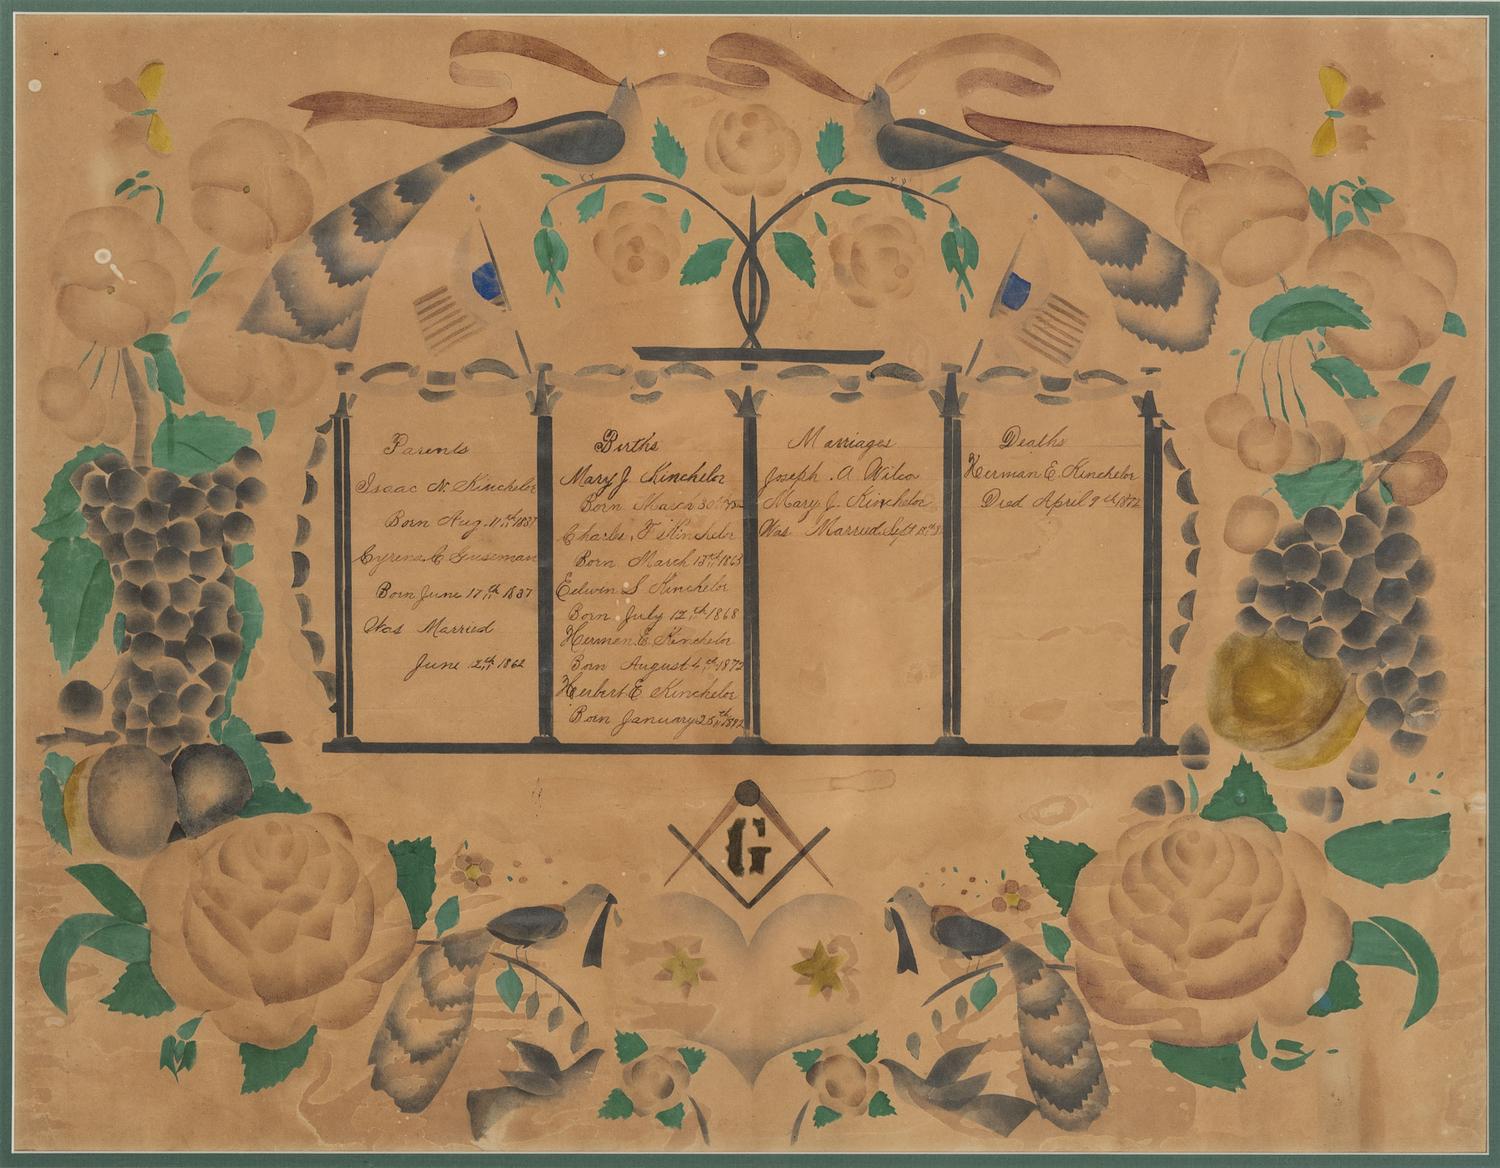 Parents
Isaac N. Kinchelor
Born Aug. 11th 1837
Cyrena C Guseman
Born June 17th 1837
Was Married
June 12th 1862
Births
Mary J. Kinchelor
Born March 30th
Charles, F. Kinchelor
Born March 13th 1863
Edwin S Kinchelor
Born July 12th 1868
Hermen. E. Kinchelor
Born August 4th 1872
Herbert E Kinchelor
Born January 25th
Marriages
Joseph . A Wilco
Mary J. Kinchelor
Was Married Sept
Deaths
Herman E. Kinchelor
Died April 9th 1872
G